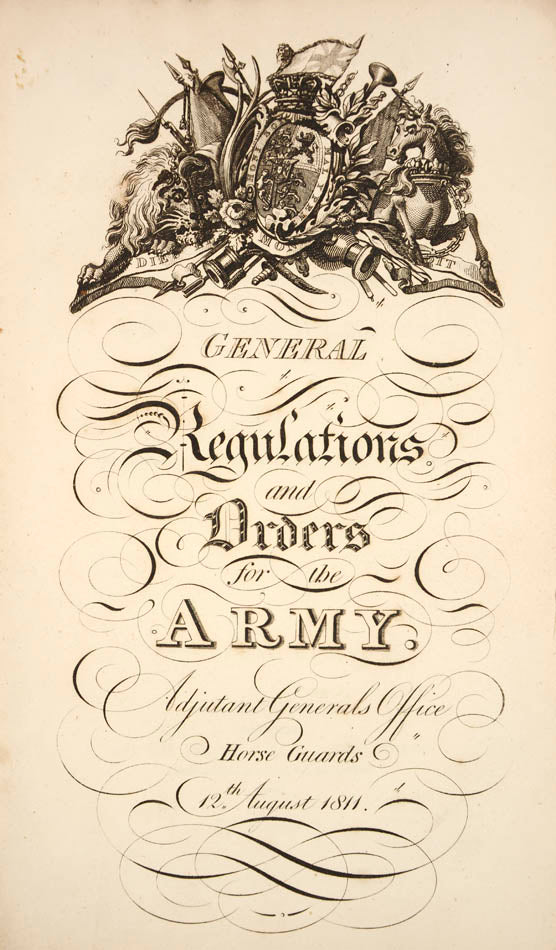 DIEU
MON
GENERAL
Regulations
and
Orders
for the
ARMY.
Adjutant Generals Office
Horse Guards
12th August 1811.